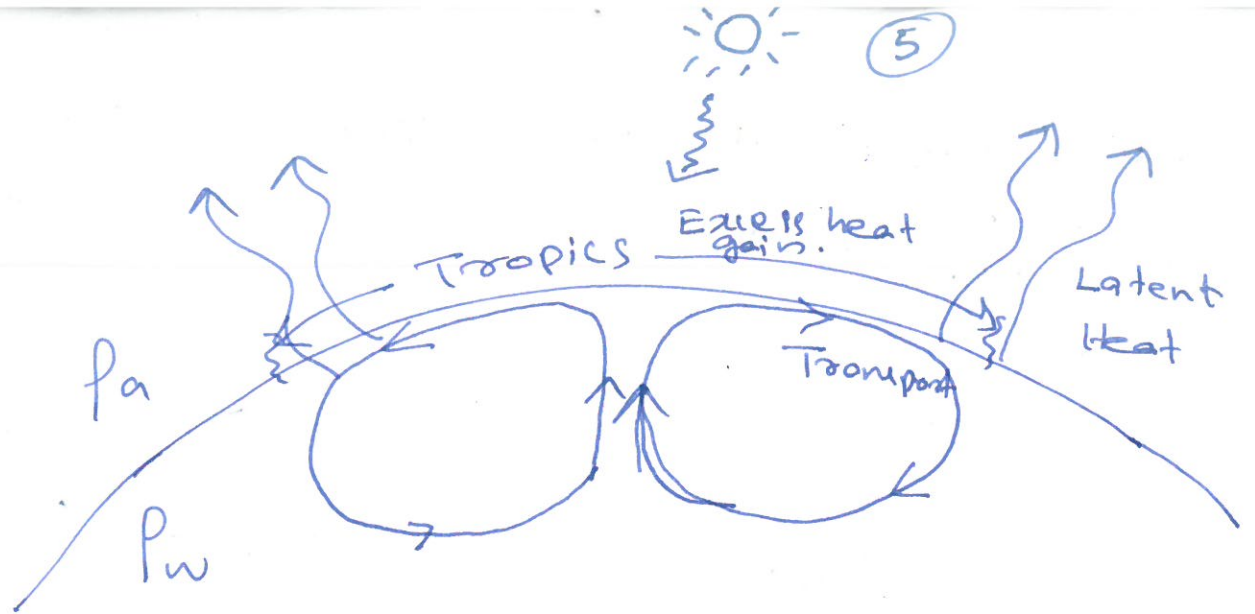 5
Excess heat
gain.
Tropics
Latent
Heat
Transport
ρa
ρw